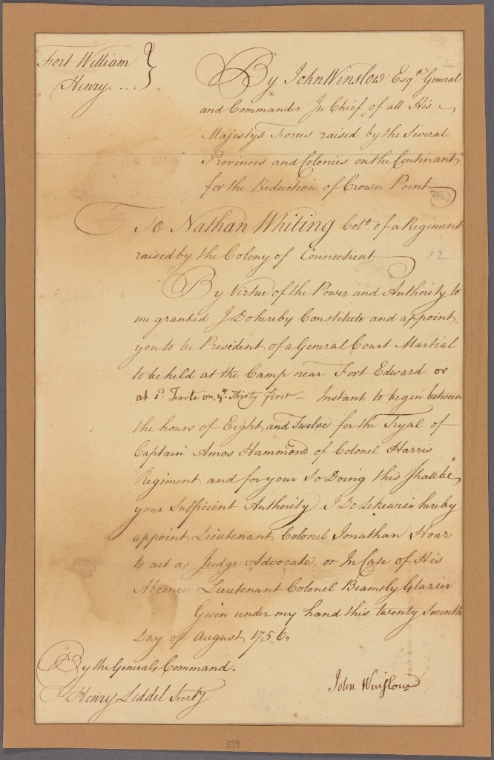 Fort William
Henry...
By John Winslow Esqr. General
and Commander In Chief of all His
Majestys Forces raised by the Several
Provinces and Colonies on the Continant
for the Reduction of Crown Point
To Nathan Whiting Coll. of a Regiment
raised by the Colony of Connecticut
12
By Virtue of the Power and Authority to
me granted I Do hereby Constitute and appoint
you to be President of a General Court Martial
to be held at the Camp near Fort Edward or
at sd. Forte on ye. Thirty First Instant to begin between
the hours of Eight and Twelve for the Tryal of
Captain Amos Hammond of Colonel Harris
Regiment and for your So Doing this Shall be
your Sufficient Authority I Do Likewise hereby
appoint Lieutenant Colonel Jonathan Hoar
to act as Judge Advocate or In Case of His
Absence Lieutenant Colonel Beamsly Glazier
Givin under my hand this twenty Seventh
Day of August 1756.
By the Generals Command.
Henry Liddel Secrty
John Winslow
534